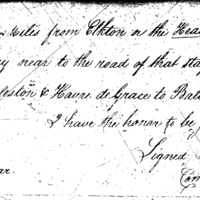 miles from Elkton on the Head
near to the road of that sta
leston & Havre de Grace to Balt
I have the honor to be
Signed
Com